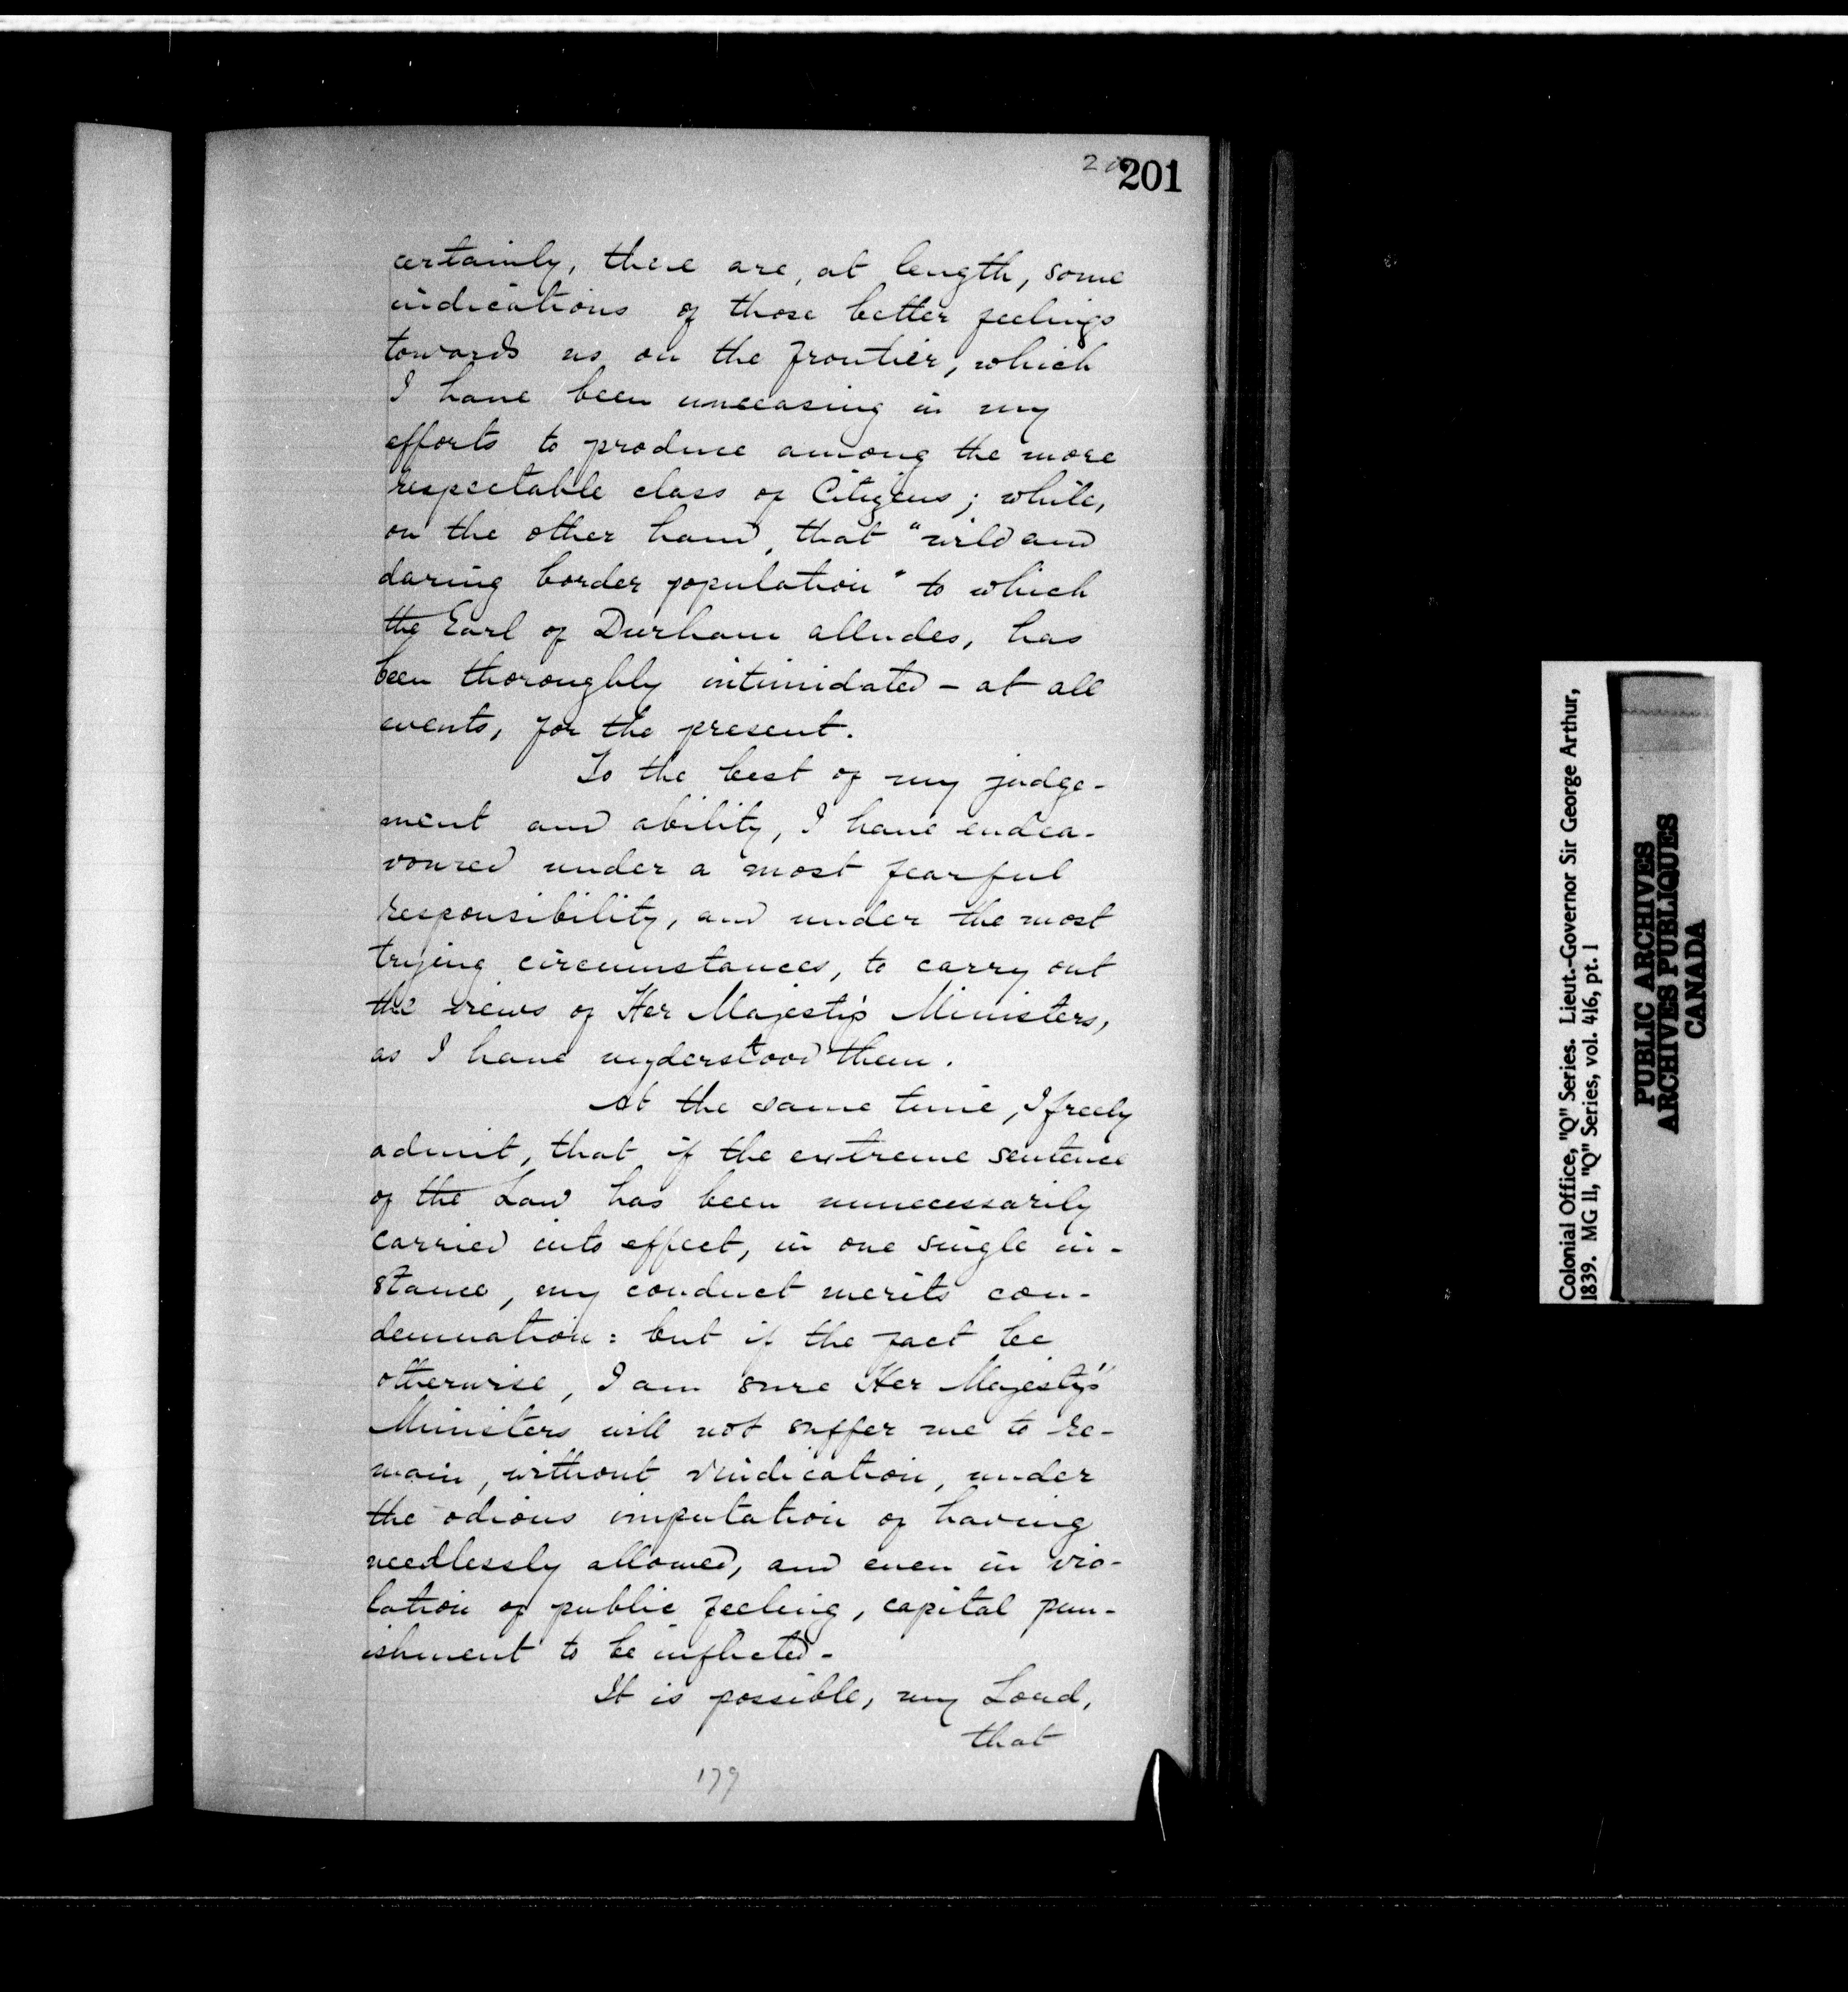 201
certainly, there are, at length, some
indications of those better feelings
towards us on the frontier, which
I have been unceasing in my
efforts to produce among the more
respectable class of Citizens; while,
on the other hand, that "wild and
daring border population" to which
the Earl of Durham alludes, has
been thoroughly intimidated - at all
events, for the present.
To the best of my judge-
ment and ability, I have endea-
voured under a most fearful
responsibility, and under the most
trying circumstances, to carry out
the views of Her Majesty's Ministers,
as I have understood them.
At the same time, I freely
admit, that if the extreme sentence
of the Law has been unnecessarily
carried into effect, in one single in-
stance, my conduct merits con-
demnation: but if the fact be
otherwise, I am sure Her Majesty's
Ministers will not suffer me to re-
main, without vindication, under
the odious imputation of having
needlessly allowed, and even in vio-
lation of public feeling, capital pun-
ishment to be inflicted -
It is possible, my Lord,
that
179
Colonial Office, "Q" Series. Lieut.-Governor Sir George Arthur,
1839. MG 11, "Q" Series, vol. 416, pt. 1
PUBLIC ARCHIVES
ARCHIVES PUBLIQUES
CANADA